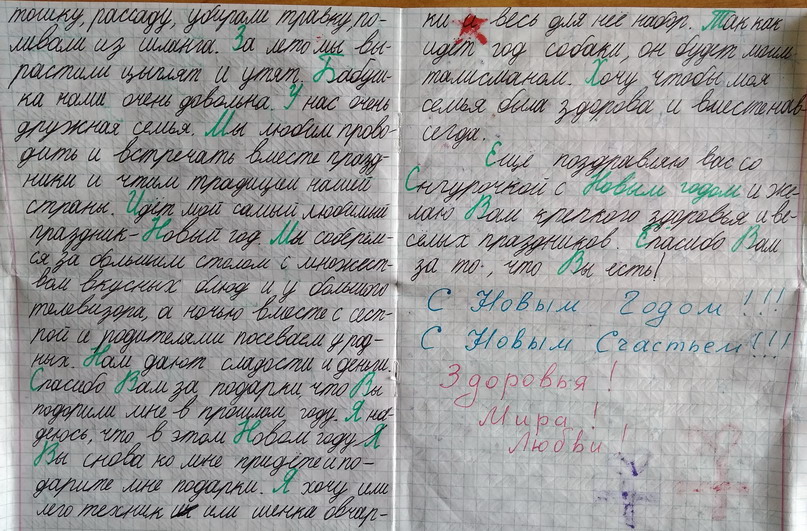 тошку, рассаду, убирали травку, по-
ливали из шланга. За лето мы вы-
растили цыплят и утят. Бабуш-
ка нами очень довольна. У нас очень
дружная семья. Мы любим прово-
дить и встречать вместе празд-
ники и чтим традиции нашей
страны. Идёт мой самый любимый
праздник - Новый год. Мы соберём-
ся за большим столом с множест-
вом вкусных блюд и у большого
телевизора, а ночью вместе с сест-
рой и родителями посеваем у род-
ных. Нам дают сладости и деньги.
Спасибо Вам за подарки, что Вы
подарили мне в прошлом году. Я на-
деюсь, что, в этом Новом году Я
Вы снова ко мне придёте и по-
дарите мне подарки. Я хочу, или
лего техник или щенка овчар-
ки и весь для неё набор. Так как
идёт год собаки, он будет моим
талисманом. Хочу чтобы моя
семья была здорова и вместе нав-
сегда.
Ещё поздравляю вас со
Снгурочкой с Новым годом и же-
лаю Вам крепкого здоровья и ве-
сёлых праздников. Спасибо Вам
за то, что Вы есть!
С Новым Годом!!!
С Новым Счастьем!!!
Здоровья!
Мира!
Любви!